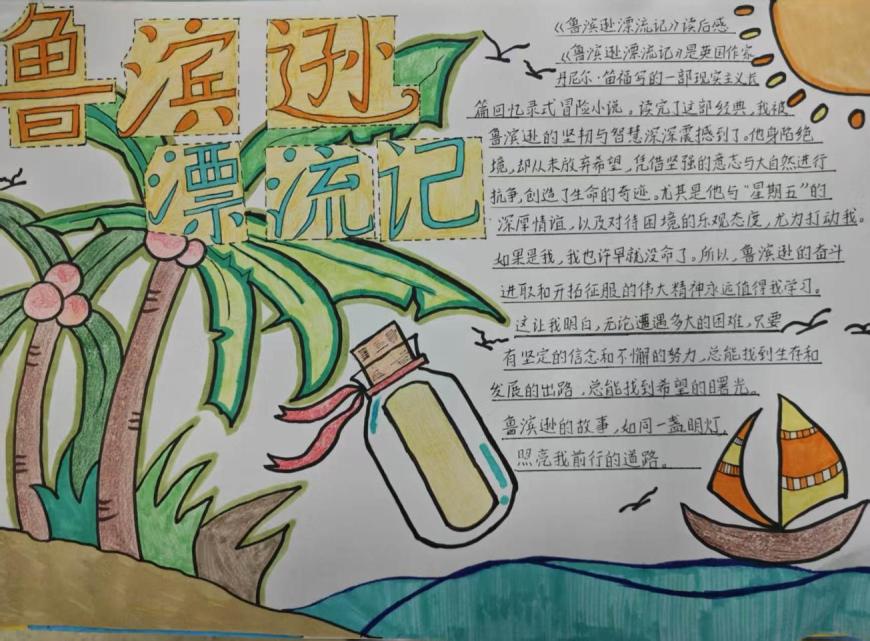 鲁滨逊
漂流记
《鲁滨逊漂流记》读后感
《鲁滨逊漂流记》是英国作家
丹尼尔·笛福写的一部现实主义长
篇回忆录式冒险小说。读完了这部经典，我被
鲁滨逊的坚韧与智慧深深震撼到了。他身陷绝
境，却从未放弃希望，凭借坚强的意志与大自然进行
抗争，创造了生命的奇迹。尤其是他与“星期五”的
深厚情谊，以及对待困境的乐观态度，尤为打动我。
如果是我，我也许早就没命了。所以，鲁滨逊的奋斗
进取和开拓征服的伟大精神永远值得我学习。
这让我明白，无论遭遇多大的困难，只要
有坚定的信念和不懈的努力，总能找到生存和
发展的出路，总能找到希望的曙光。
鲁滨逊的故事，如同一盏明灯，
照亮我前行的道路。